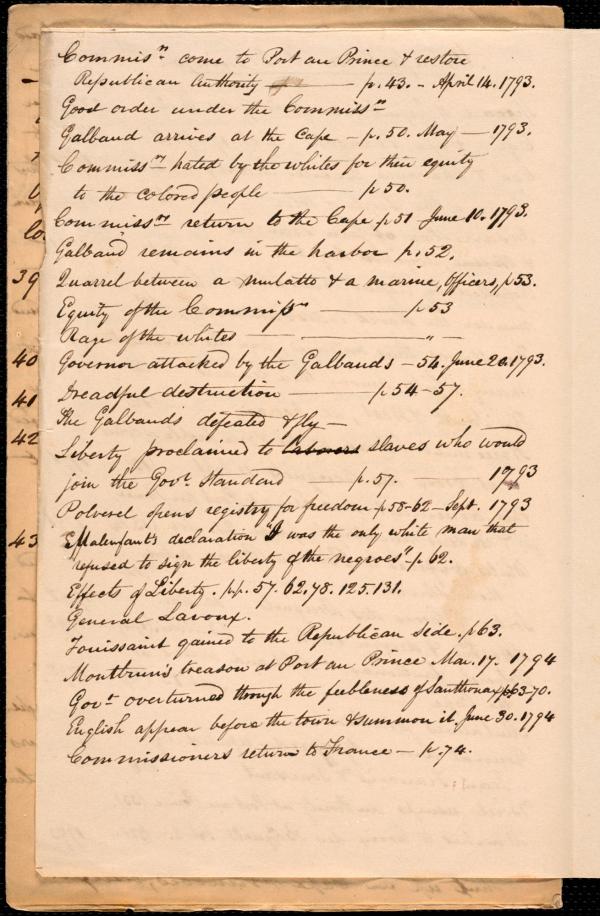 Commissn. come to Port au Prince & restore
Republican Authority — p. 43. - April 14. 1793.
Good order under the Commissn
Galbaud arrives at the Cape — p. 50. May — 1793.
Commissnrs hated by the whites for their equity
to the colored people — p 50.
Commissnrs return to the Cape p 51 June 10. 1793.
Galbaud remains in the harbor p. 52.
39 Quarrel between a mulatto & a marine, Officers, p 53.
Equity of the Commissn — p 53
Rage of the whites — " —
40 Governor attacked by the Galbauds — 54. June 20. 1793.
41 Dreadful destruction — p. 54-57.
The Galbauds defeated & fly —
42 Liberty proclaimed to laborers slaves who would
join the Govt. Standard — p. 57. — 1793
Polverel opens registry for freedom p 58-62 - Sept. 1793
43 Malenfant's declaration "I was the only white man that
refused to sign the liberty of the negroes" - p 62.
Effects of Liberty. pp. 57. 62. 78. 125. 131.
General Lavoux.
Touissaint gained to the Republican side. p 63.
Montbrun's treason at Port au Prince Mar. 17. 1794
Govt overturned through the feebleness of Santhonax p 63-70.
English appear before the town & summon it. June 30. 1794
Commissioners return to France — p. 74.